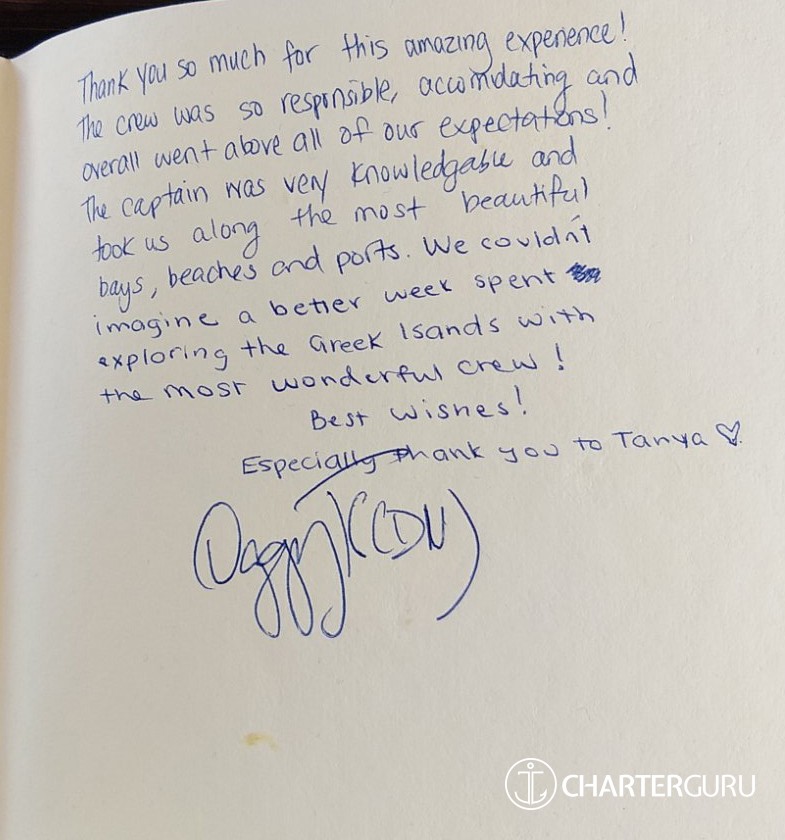 Thank you so much for this amazing experience!
The crew was so responsible, accomidating and
overall went above all of our expectations!
The captain was very knowledgable and
took us along the most beautiful
bays, beaches and ports. We couldn't
imagine a better week spent
exploring the Greek Isands with
the most wonderful crew!
Best wishes!
Especially thank you to Tanya ♡.
(CDN)
CHARTERGURU